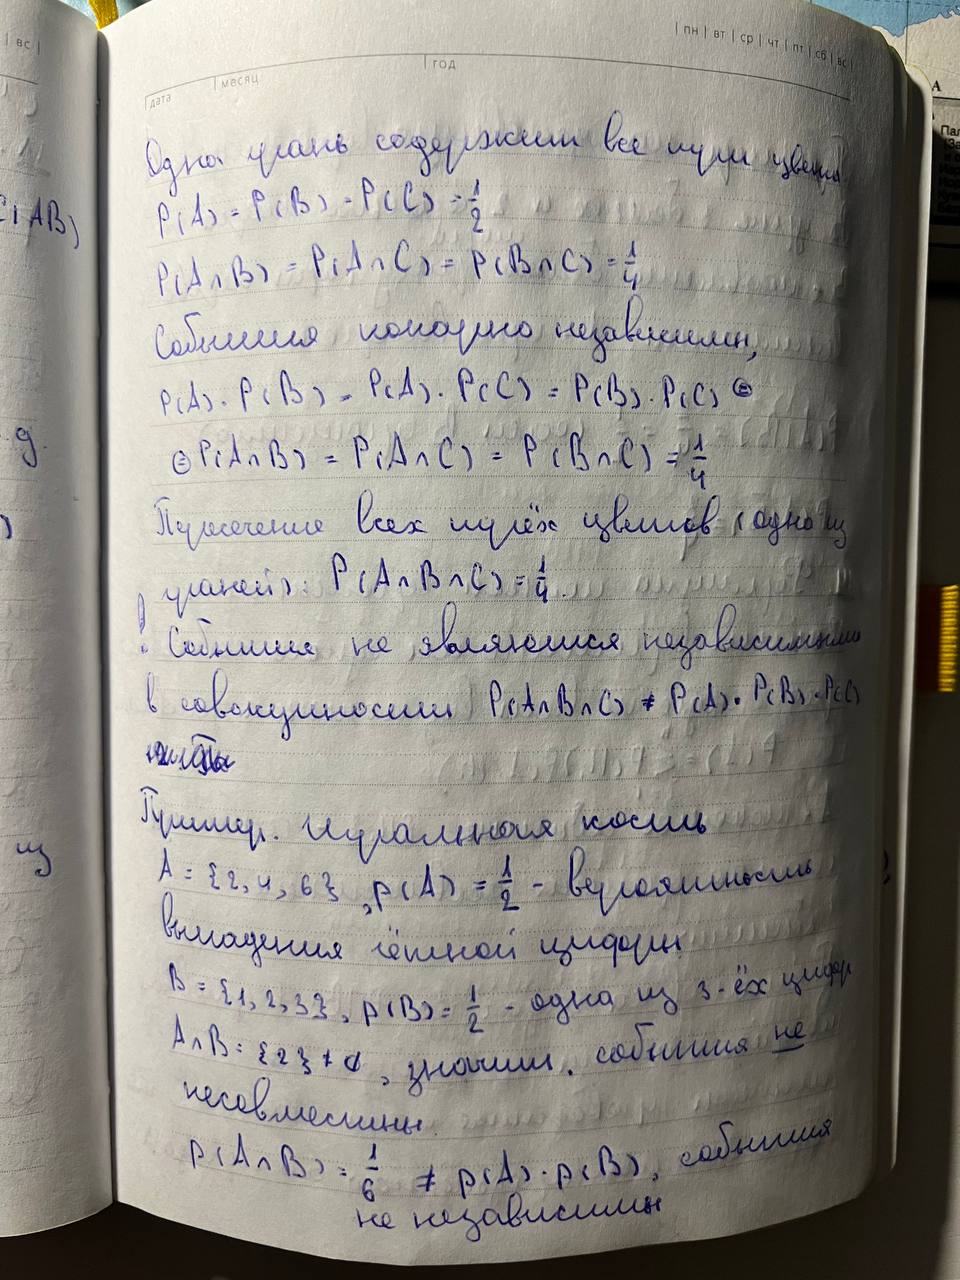 вс
дата месяц год
пн вт ср чт пт сб вс
Одна грань содержит все три цвета
P(A) = P(B) = P(C) = 1/2
P(A∩B) = P(A∩C) = P(B∩C) = 1/4
События попарно независимы,
P(A)·P(B) = P(A)·P(C) = P(B)·P(C) ⊜
⊜ P(A∩B) = P(A∩C) = P(B∩C) = 1/4
Пересечение всех трёх цветов (одна из
граней): P(A∩B∩C) = 1/4.
! События не являются независимыми
в совокупности P(A∩B∩C) ≠ P(A)·P(B)·P(C)
Пример. Игральная кость
A = {2, 4, 6}, p(A) = 1/2 - вероятность
выпадения чётной цифры.
B = {1, 2, 3}, p(B) = 1/2 - одна из 3-ёх цифр
A∩B = {2} ≠ ∅, значит, события не
несовместны.
p(A∩B) = 1/6 ≠ p(A)·p(B), события
не независимы